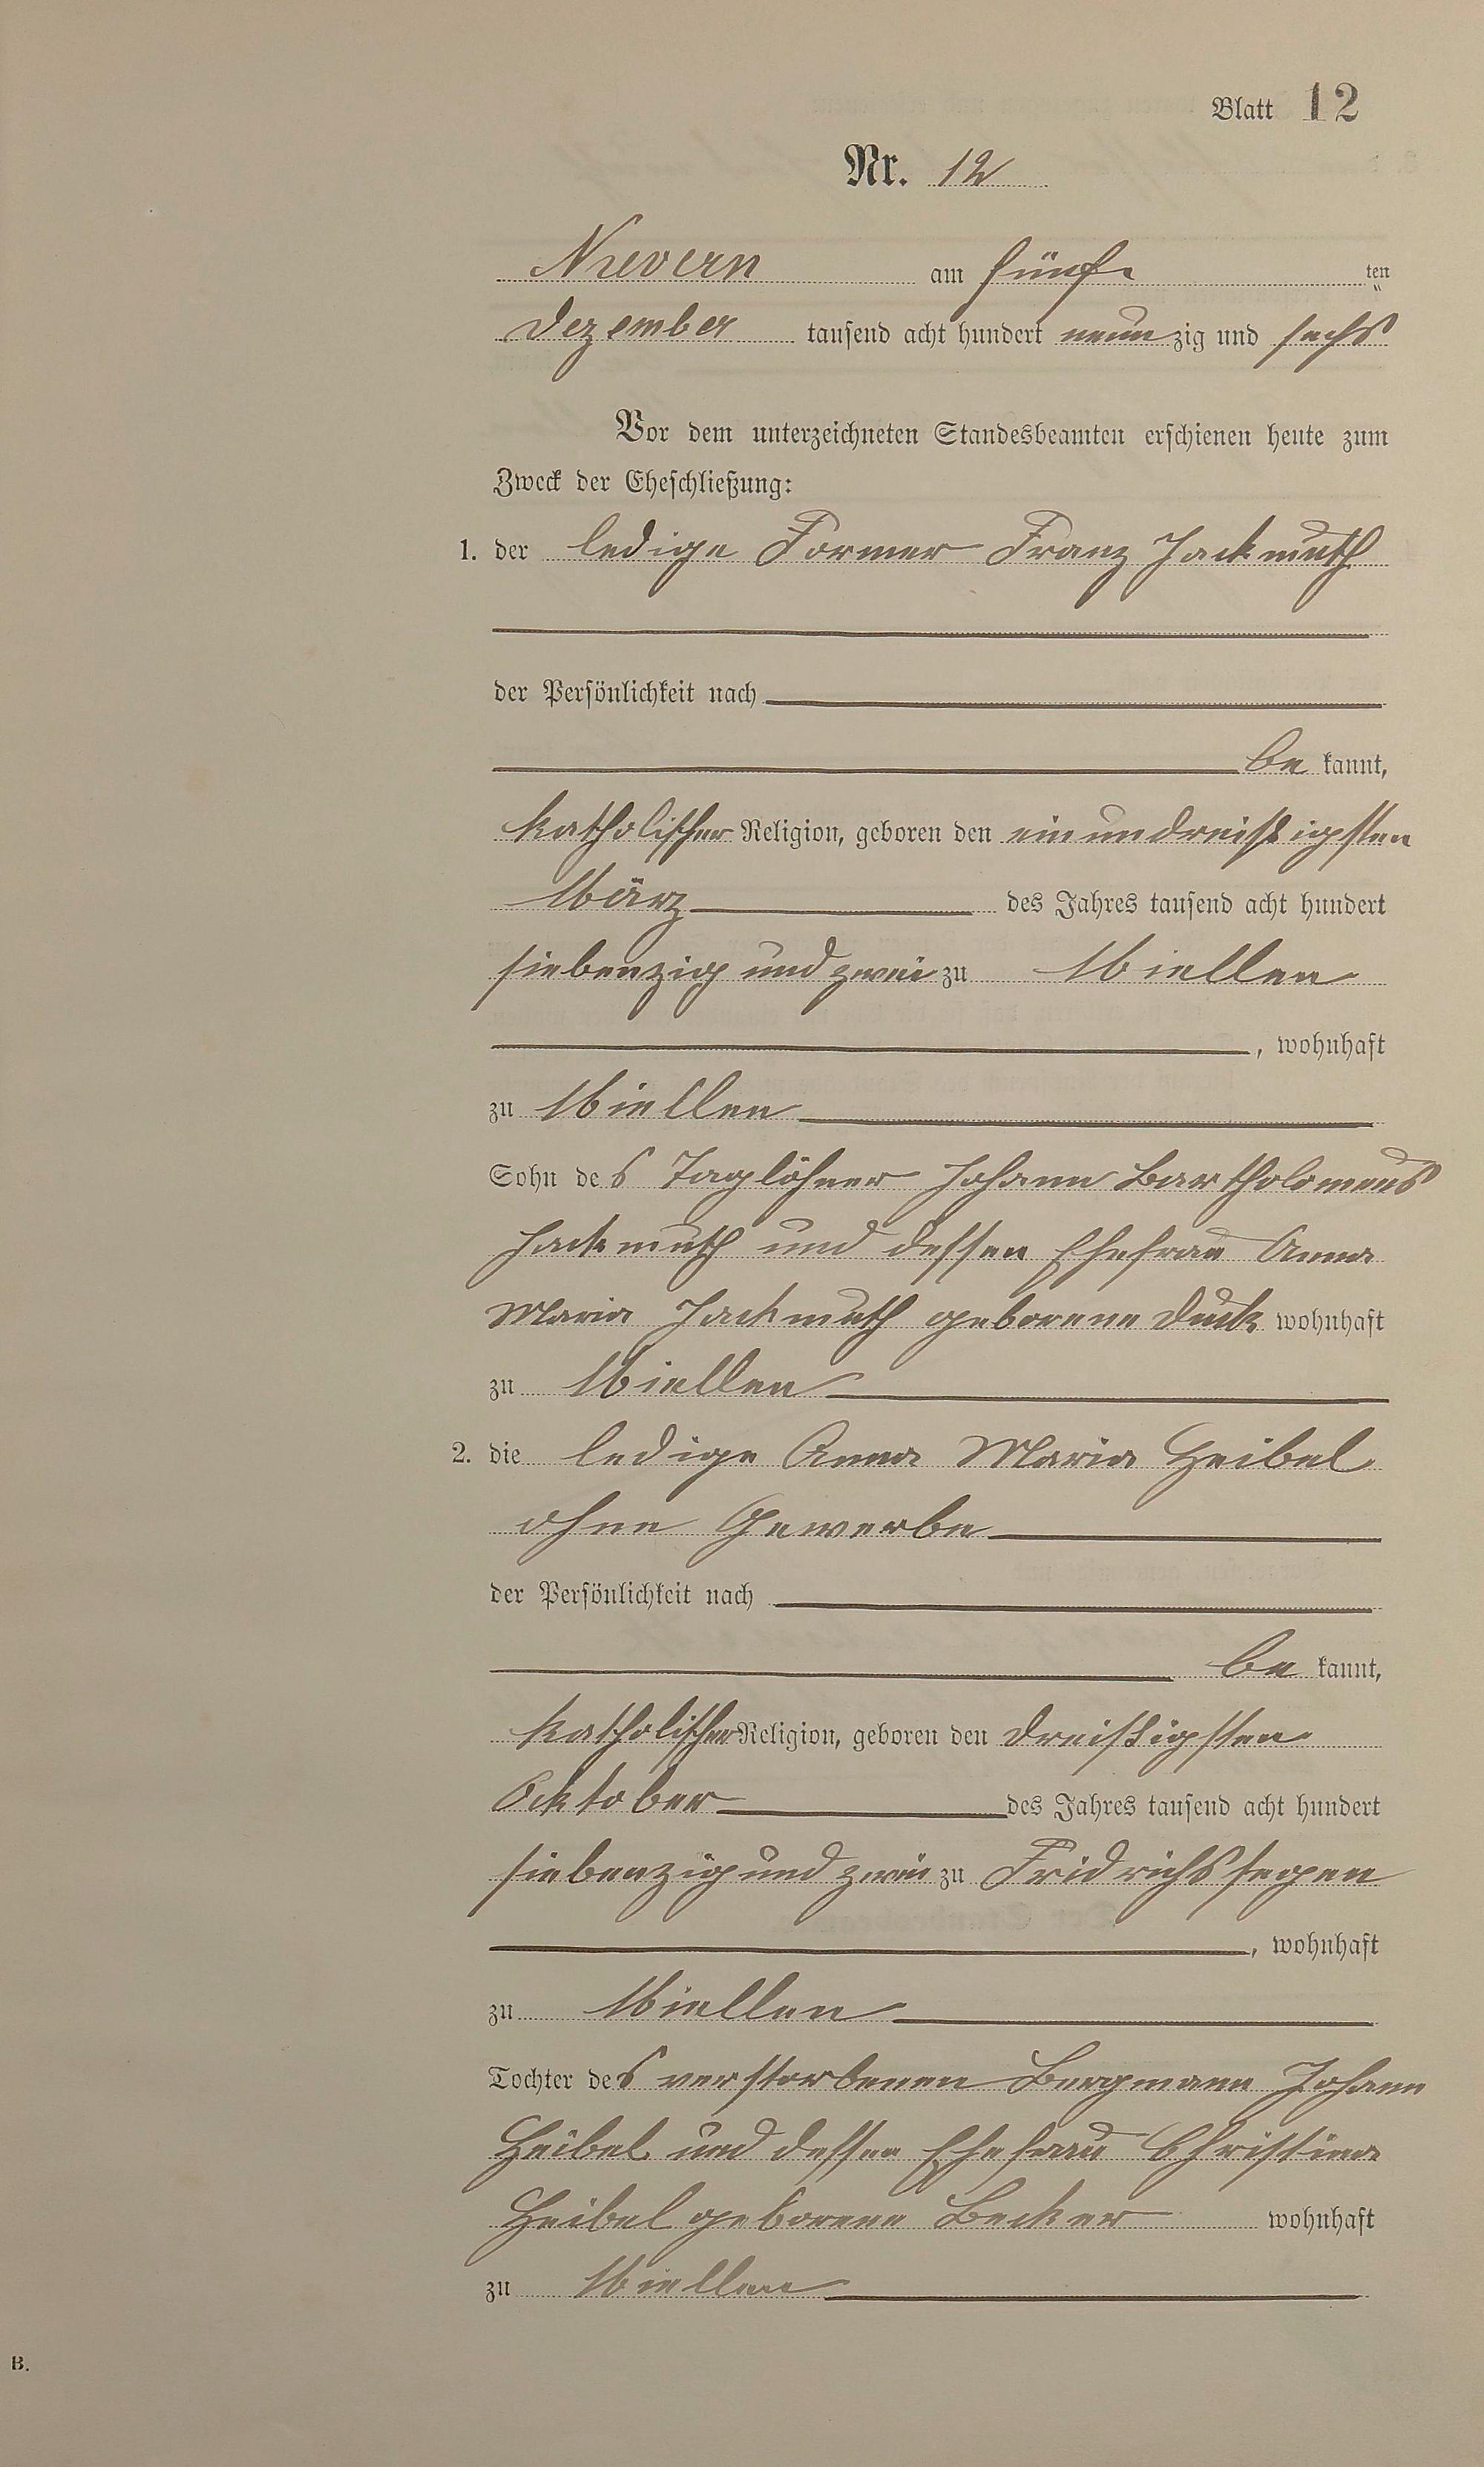 Blatt 12
Nr. 12
Nievern am fünf ten
Dezember tausend acht hundert neun zig und sechs
Vor dem unterzeichneten Standesbeamten erschienen heute zum
Zweck der Eheschließung:
1. der ledige Former Franz Jackmuth
der Persönlichkeit nach
be kannt,
katholischer Religion, geboren den einundreißigsten
März des Jahres tausend acht hundert
siebenzig und zwei zu Miellen
, wohnhaft
zu Miellen
Sohn des Taglöhner Johann Bartholomeus
Jackmuth und dessen Ehefrau Anna
Maria Jackmuth geborene Duck wohnhaft
zu Miellen
2. die ledige Anna Maria Heibel
ohne Gewerbe
der Persönlichkeit nach
be kannt,
katholischer Religion, geboren den dreißigsten
Oktober des Jahres tausend acht hundert
siebenzig und zwei zu Fridrichssegen
, wohnhaft
zu Miellen
Tochter des verstorbenen Bergmann Johann
Heibel und dessen Ehefrau Christina
Heibel geborene Becker wohnhaft
zu Miellen
B.